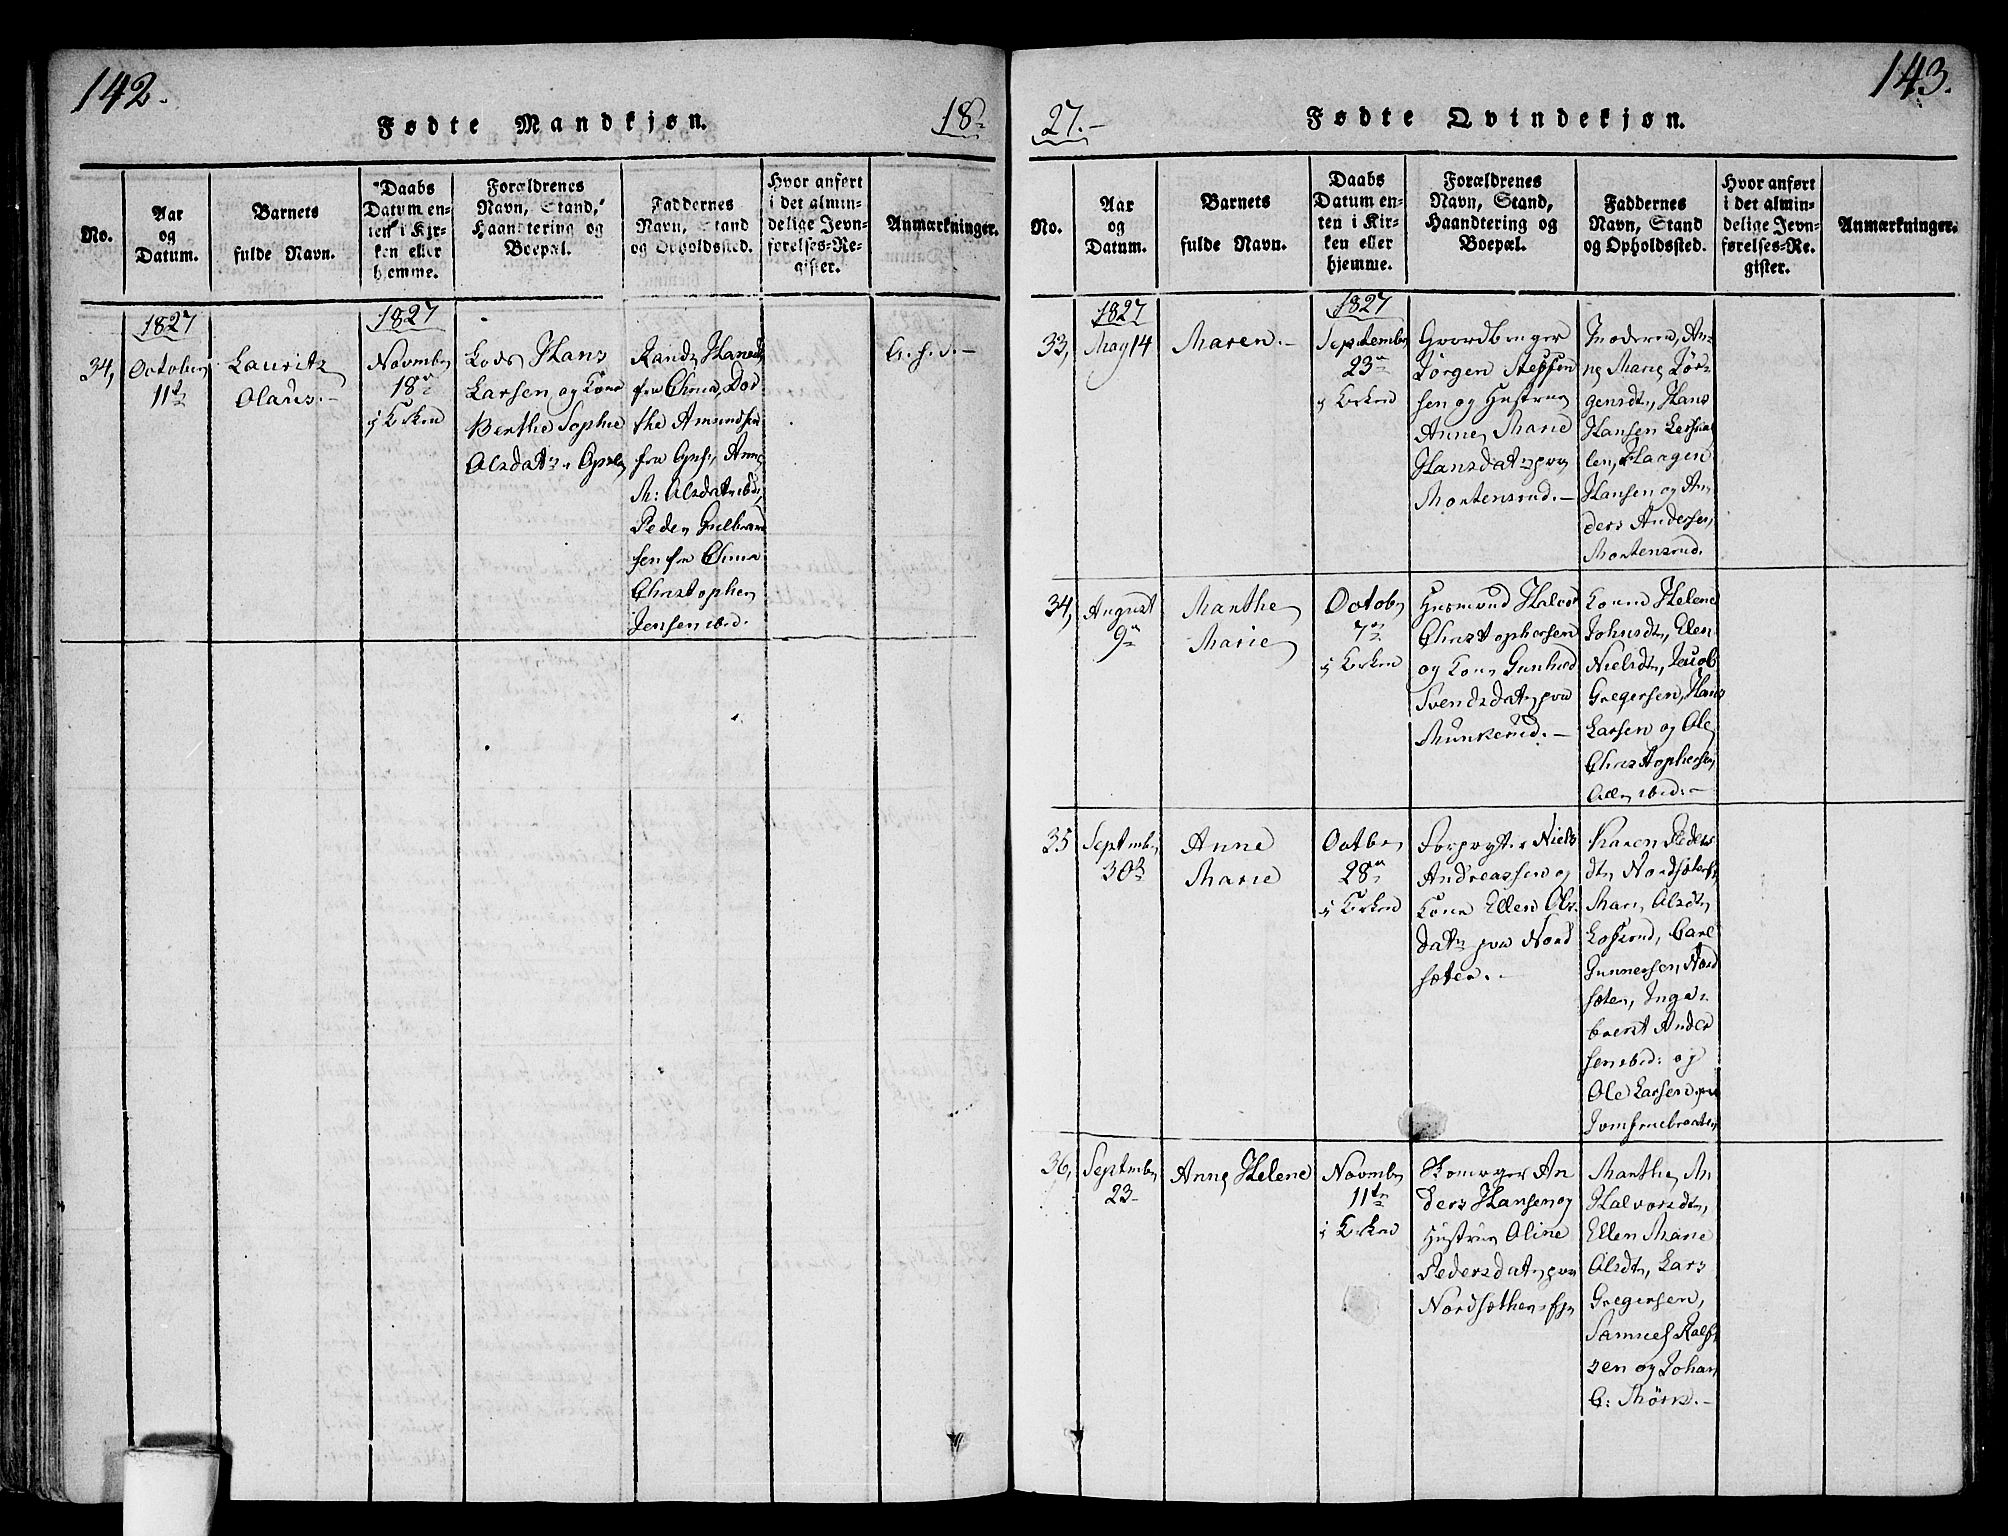 142.
Fødte Mandkjøn.
18
No.
Aar
og
Datum.
Barnets
fulde Navn.
Daabs
Datum en-
ten i Kir-
ken eller
hjemme.
Forældrenes
Navn, Stand,
Haandtering og
Boepæl.
Faddernes
Navn, Stand
og Opholdssted.
Hvor anført
i det almin-
delige Jevn-
førelses-Re-
gister.
Anmærkninger.
34,
1827
October
11te
Lauritz
Olaus.-
1827
Novmbr
18de
i Kirken
Lods Hans
Larsen og Kone
Berthe Sophie
Olsdatr
fra
the Amundsen
M: Olsdatr ibd.
Peder Gulbrand
sen fra
Christopher
Jensen ibd.
143.
27.-
Fødte Qvindekjøn.
No.
Aar
og
Datum.
Barnets
fulde Navn.
Daabs
Datum en-
ten i Kir-
ken eller
hjemme.
Forældrenes
Navn, Stand,
Haandtering og
Boepæl.
Faddernes
Navn, Stand
og Opholdssted.
Hvor anført
i det almin-
delige Jevn-
førelses-Re-
gister.
Anmærkninger.
33,
1827
May 14
Maren.-
1827
Septembr
23de
i Kirken
Gaardbruger
Jørgen Steffen
sen og Hustrue
Anne Marie
Hansdatr paa
Mortensrud.-
Moderen, An-
ne Marie Jør-
gensdt, Hans
Hansen
Haagen
Hansen og An
ders Andersen
Mortensrud.
34,
August
9de
Marthe
Marie
Octobr
7de
i Kirken
Huusmand Halvor
Christophersen
og Kone Gunhild
Svendsdatr paa
Munkerud.-
Kone Helene
Johnsdt, Elen
Nielsdt, Jacob
Gregersen, Hans
Larsen og Ole
Christophersen,
Alle ibid.-
35
Septmbr
30te
Anne
Marie
Octbr
28de
i Kirken
Forpagter Niels
Andreassen og
Kone Ellen Ols-
datr paa Nord
sæter.-
Karen Peders
dtr Nordsæter,
Mari Olsdtr
Carl
Gunnersen Nord
sæter, Inge-
bregt Ander
sen ibid: og
Ole Larsen paa
Jomfruebraaten
36,
Septmbr
23-
Anne Helene
Novmbr
11te
i Kirken
Skomager An
ders Hansen og
Hustrue Oline
Pedersdatr paa
Nordsæther-Eje
Marthe M
Halvorsdtr,
Ellen Marie
Olsdtr, Lars
Gregersen,
Samuel
sen og Johan
C: Mörk.-